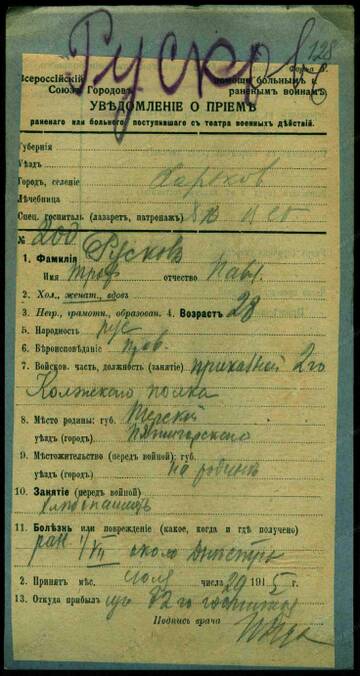 Русков
128
Форма
Всероссійскій помощи больнымъ и
Союзъ Городовъ раненымъ воинамъ
УВѢДОМЛЕНІЕ О ПРІЕМѢ
раненаго или больного, поступившаго съ театра военныхъ дѣйствій.
Губернія
Уѣздъ
Городъ, селеніе Харьков
Лѣчебница
Спец. госпиталь (лазаретъ, патронажъ)
№ 200
1. Фамилія Русков
Имя Троф отчество Павл
2. Хол., женат., вдовъ
3. Негр., грамотн., образован. 4. Возрастъ 28
5. Народность рус
6. Вѣроисповѣданіе прав.
7. Войсков. часть, должность (занятіе) приказный 2го
полка
8. Мѣсто родины: губ. Терской
уѣздъ (городъ) Пятигорского
9. Мѣстожительство (передъ войной): губ.
уѣздъ (городъ) на родинѣ
10. Занятіе (передъ войной)
хлебопашецъ
11. Болѣзнь или поврежденіе (какое, когда и гдѣ получено)
ран. 1/VII около Днѣстра
2. Принятъ мѣс. июля числа 29 1915 г.
13. Откуда прибылъ из 82го госпиталя
Подпись врача